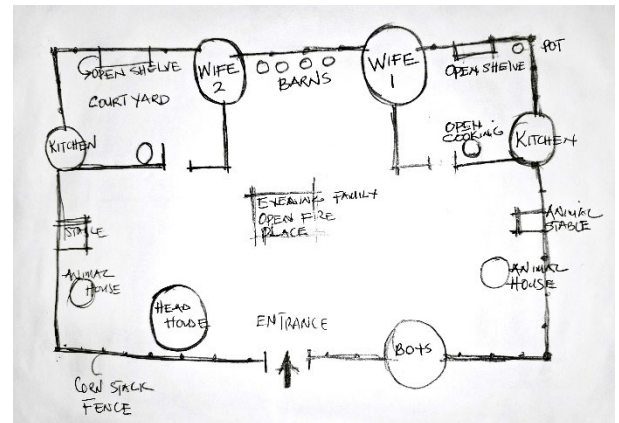 OPEN SHELVE
WIFE
2
BARNS
WIFE
1
OPEN SHELVE
POT
COURT YARD
KITCHEN
OPEN
COOKING
KITCHEN
EVENING FAMILY
OPEN FIRE
PLACE
STABLE
ANIMAL
STABLE
ANIMAL
HOUSE
ANIMAL
HOUSE
HEAD
HOUSE
ENTRANCE
BOYS
CORN STACK
FENCE